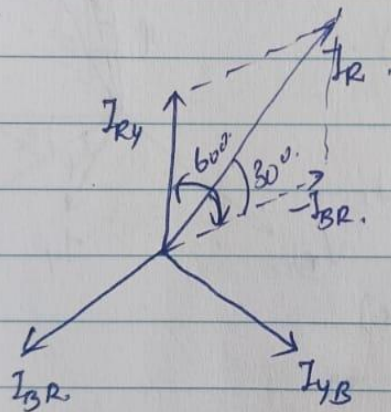 I_R.
I_RY
60°.
30°.
-I_BR.
I_BR.
I_YB